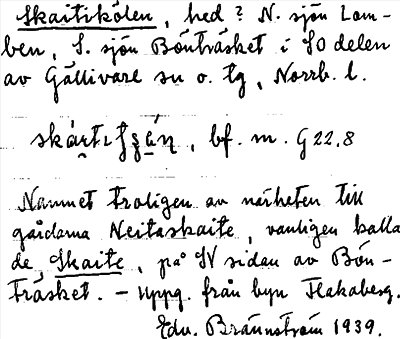 Skaitikölen, hed? N. sjön Lom-
ben, S. sjön Bönträsket i SO delen
av Gällivare sn o. tg, Norrb. l.
bf. m. G 22.8
Namnet troligen av närheten till
gårdarna Neitaskaite, vanligen kalla
de, Skaite, på SV sidan av Bön-
träsket. - Uppg. från byn Flakaberg.
Edv. Brännström 1939.